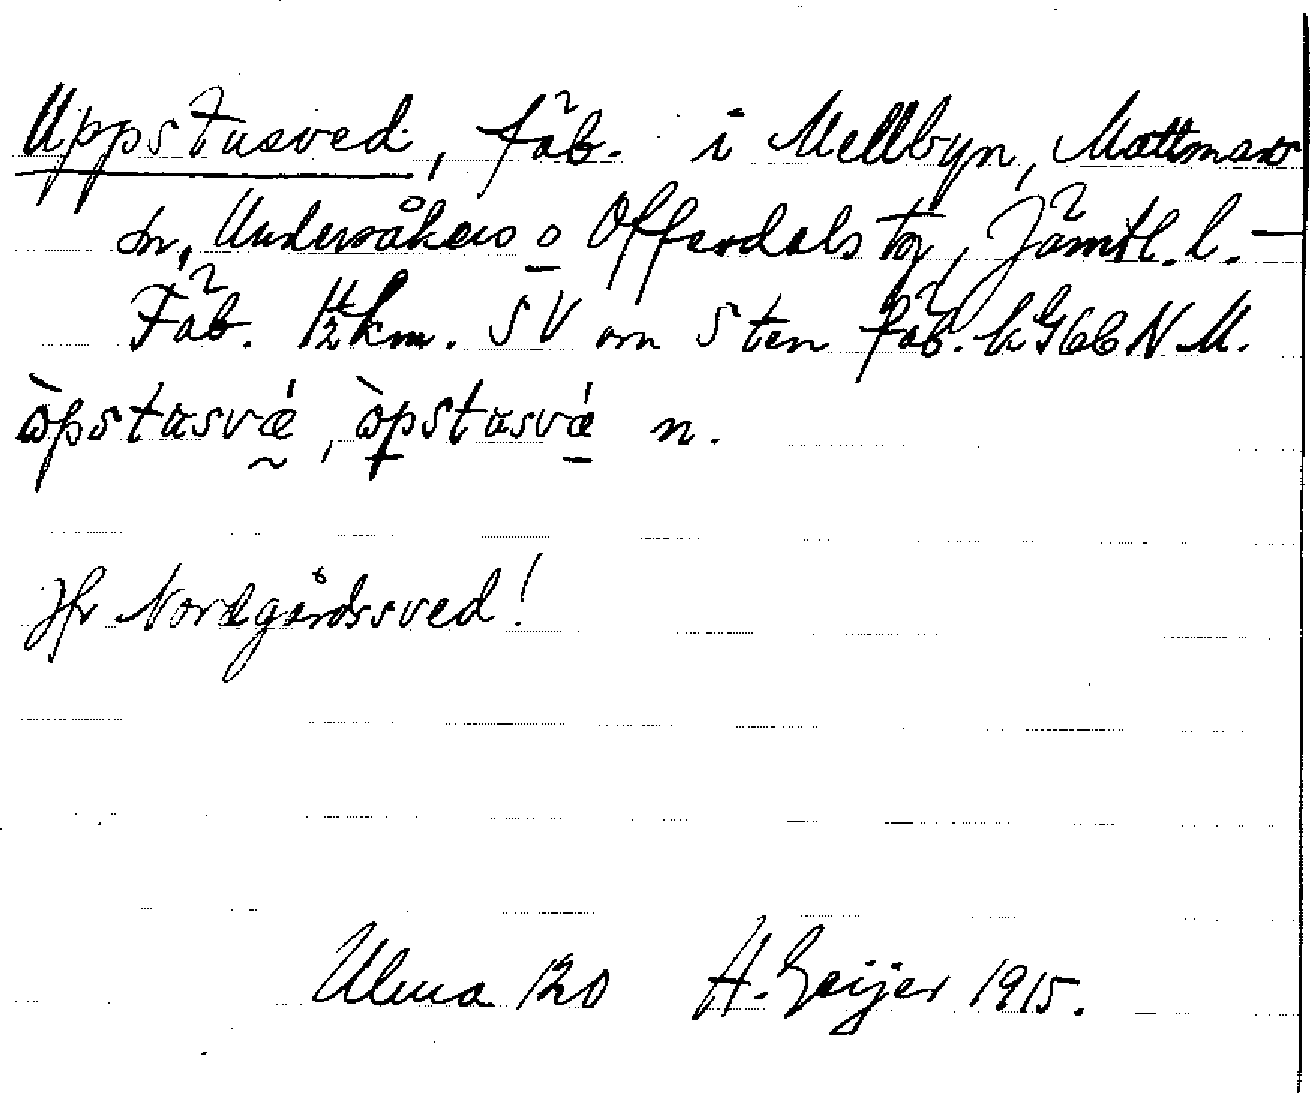 Uppstusved, fäb. i Mellbyn, Mattmars
sn, Undersåkers o Offerdals tg, Jämtl. l. —
Fäb. 1½ km. SV om Sten fäb. k G66 N M.
òpstusvǽ, òpstusvǽ n.
Jfr Nordgårdssved!
Ulma 120 H. Geijer 1915.